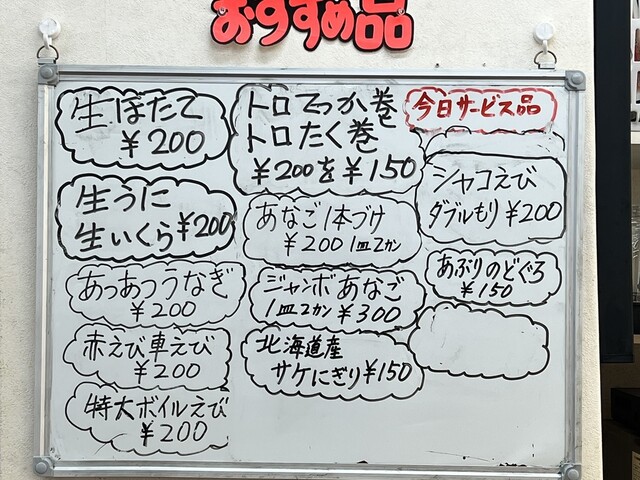 おすすめ品
生ほたて
¥200
生うに
生いくら¥200
あっあつうなぎ
¥200
赤えび車えび
¥200
特大ボイルえび
¥200
トロてっか巻
トロたく巻
¥200を¥150
あなご1本づけ
¥200 1皿2カン
ジャンボあなご
1皿2カン ¥300
北海道産
サケにぎり¥150
今日サービス品
シャコえび
ダブルもり¥200
あぶりのどぐろ
¥150